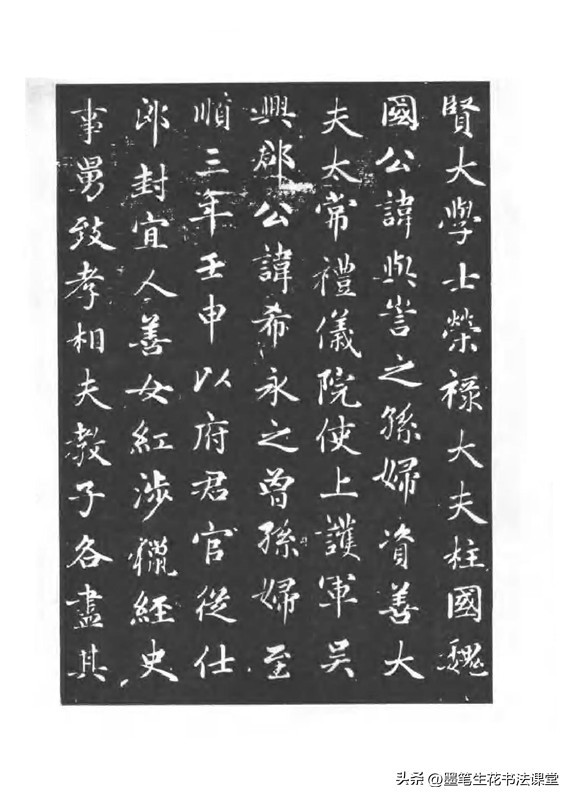 賢大學士榮祿大夫柱國魏
國公諱與訔之孫婦資善大
夫太常禮儀院使上護軍吴
興郡公諱希永之曾孫婦至
順三年壬申以府君官從仕
郎封宜人善女紅涉獵經史
事舅致孝相夫教子各盡其
头条 @墨笔生花书法课堂